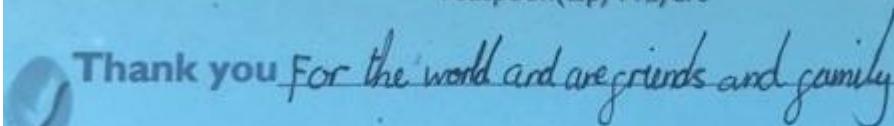 Thank you For the world and are friends and family